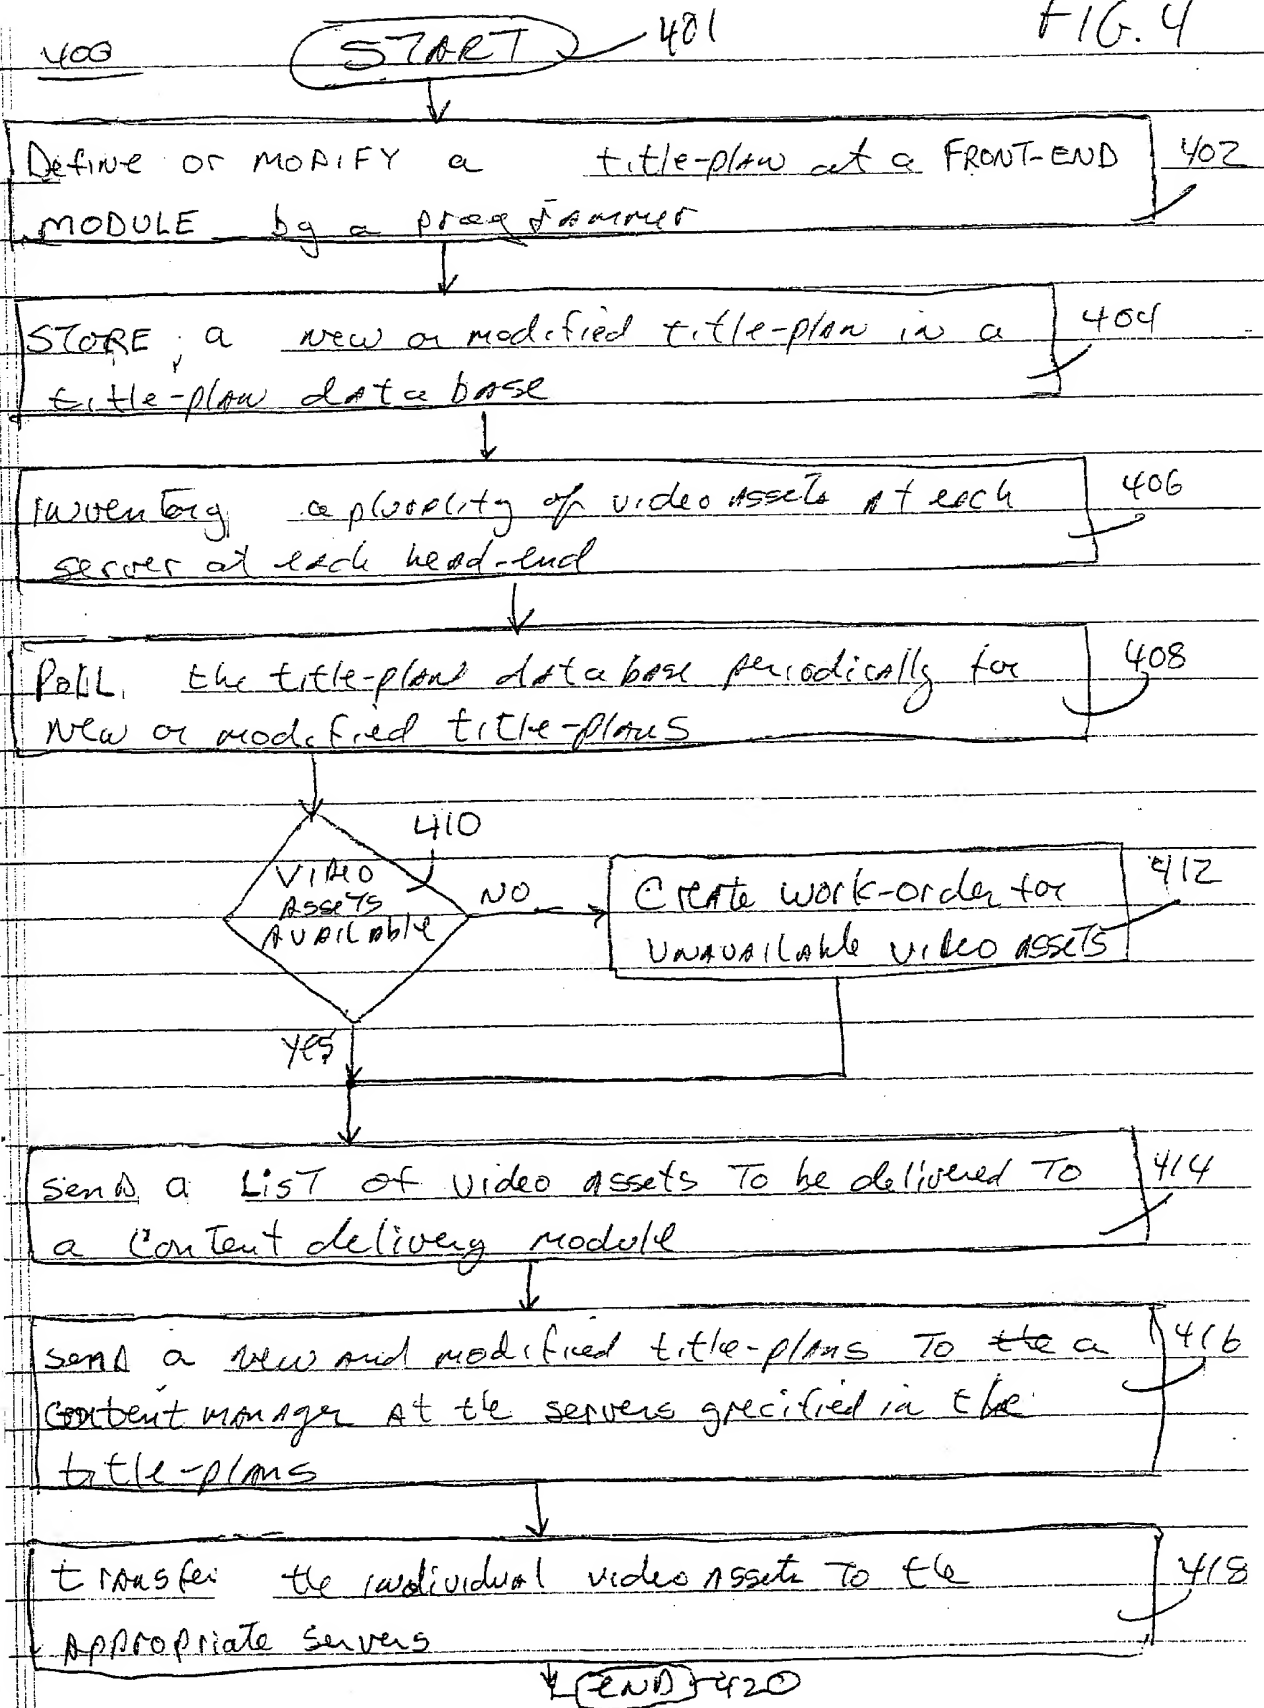 FIG. 4
400
START
401
Define or MODIFY a title-plan at a FRONT-END
MODULE by a programmer
402
STORE, a new or modified title-plan in a
title-plan data base
404
inventory a plurality of video assets at each
server at each head-end
406
Poll the title-plan data base periodically for
new or modified title-plans
408
410
VIDEO
ASSETS
AVAILABLE
NO
Create work-order for
UNAVAILABLE video ASSETS
412
yes
send a LIST of video assets To be delivered To
a Content delivery module
414
send a new and modified title-plans To the a
content manager at the servers specified in the
title-plans
416
transfer the individual video assets To the
Appropriate servers
418
END
420